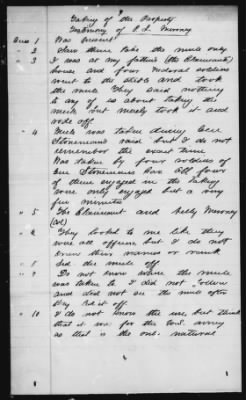 Taking of the Property
Testimony of P. L. Mooney
Ans 1 Was present
" 2 Saw them take the mule only
" 3 I was at my father's (the Claimant's)
house and four Federal soldiers
went to the stable and took
the mule They said nothing
to any of us about taking the
mule but merely took it and
rode off
" 4 Mule was taken during Gen
Stoneman's raid but I do not
remember the exact time
Was taken by four soldiers of
Gen Stoneman's All four
of them engaged in the taking
were only engaged but a very
few minutes
" 5 The Claimant and Kelly Mooney
(col)
They looked to me like they
were all officers but I do not
know their names or rank
" Rode the mule off
" Do not know where the mule
was taken to I did not follow
and did not see the mule after
they rid it off
" 10 I do not know the use but think
that it was for the U.S. army
as that is the only natural